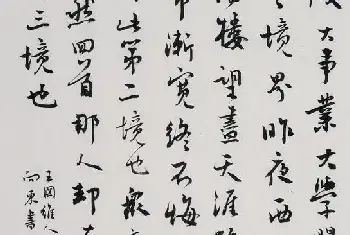 大事業大學問
境界昨夜西
樓望盡天涯路
漸寬終不悔
此第二境也衆
然回首那人却在
三境也
王國維人
向東書